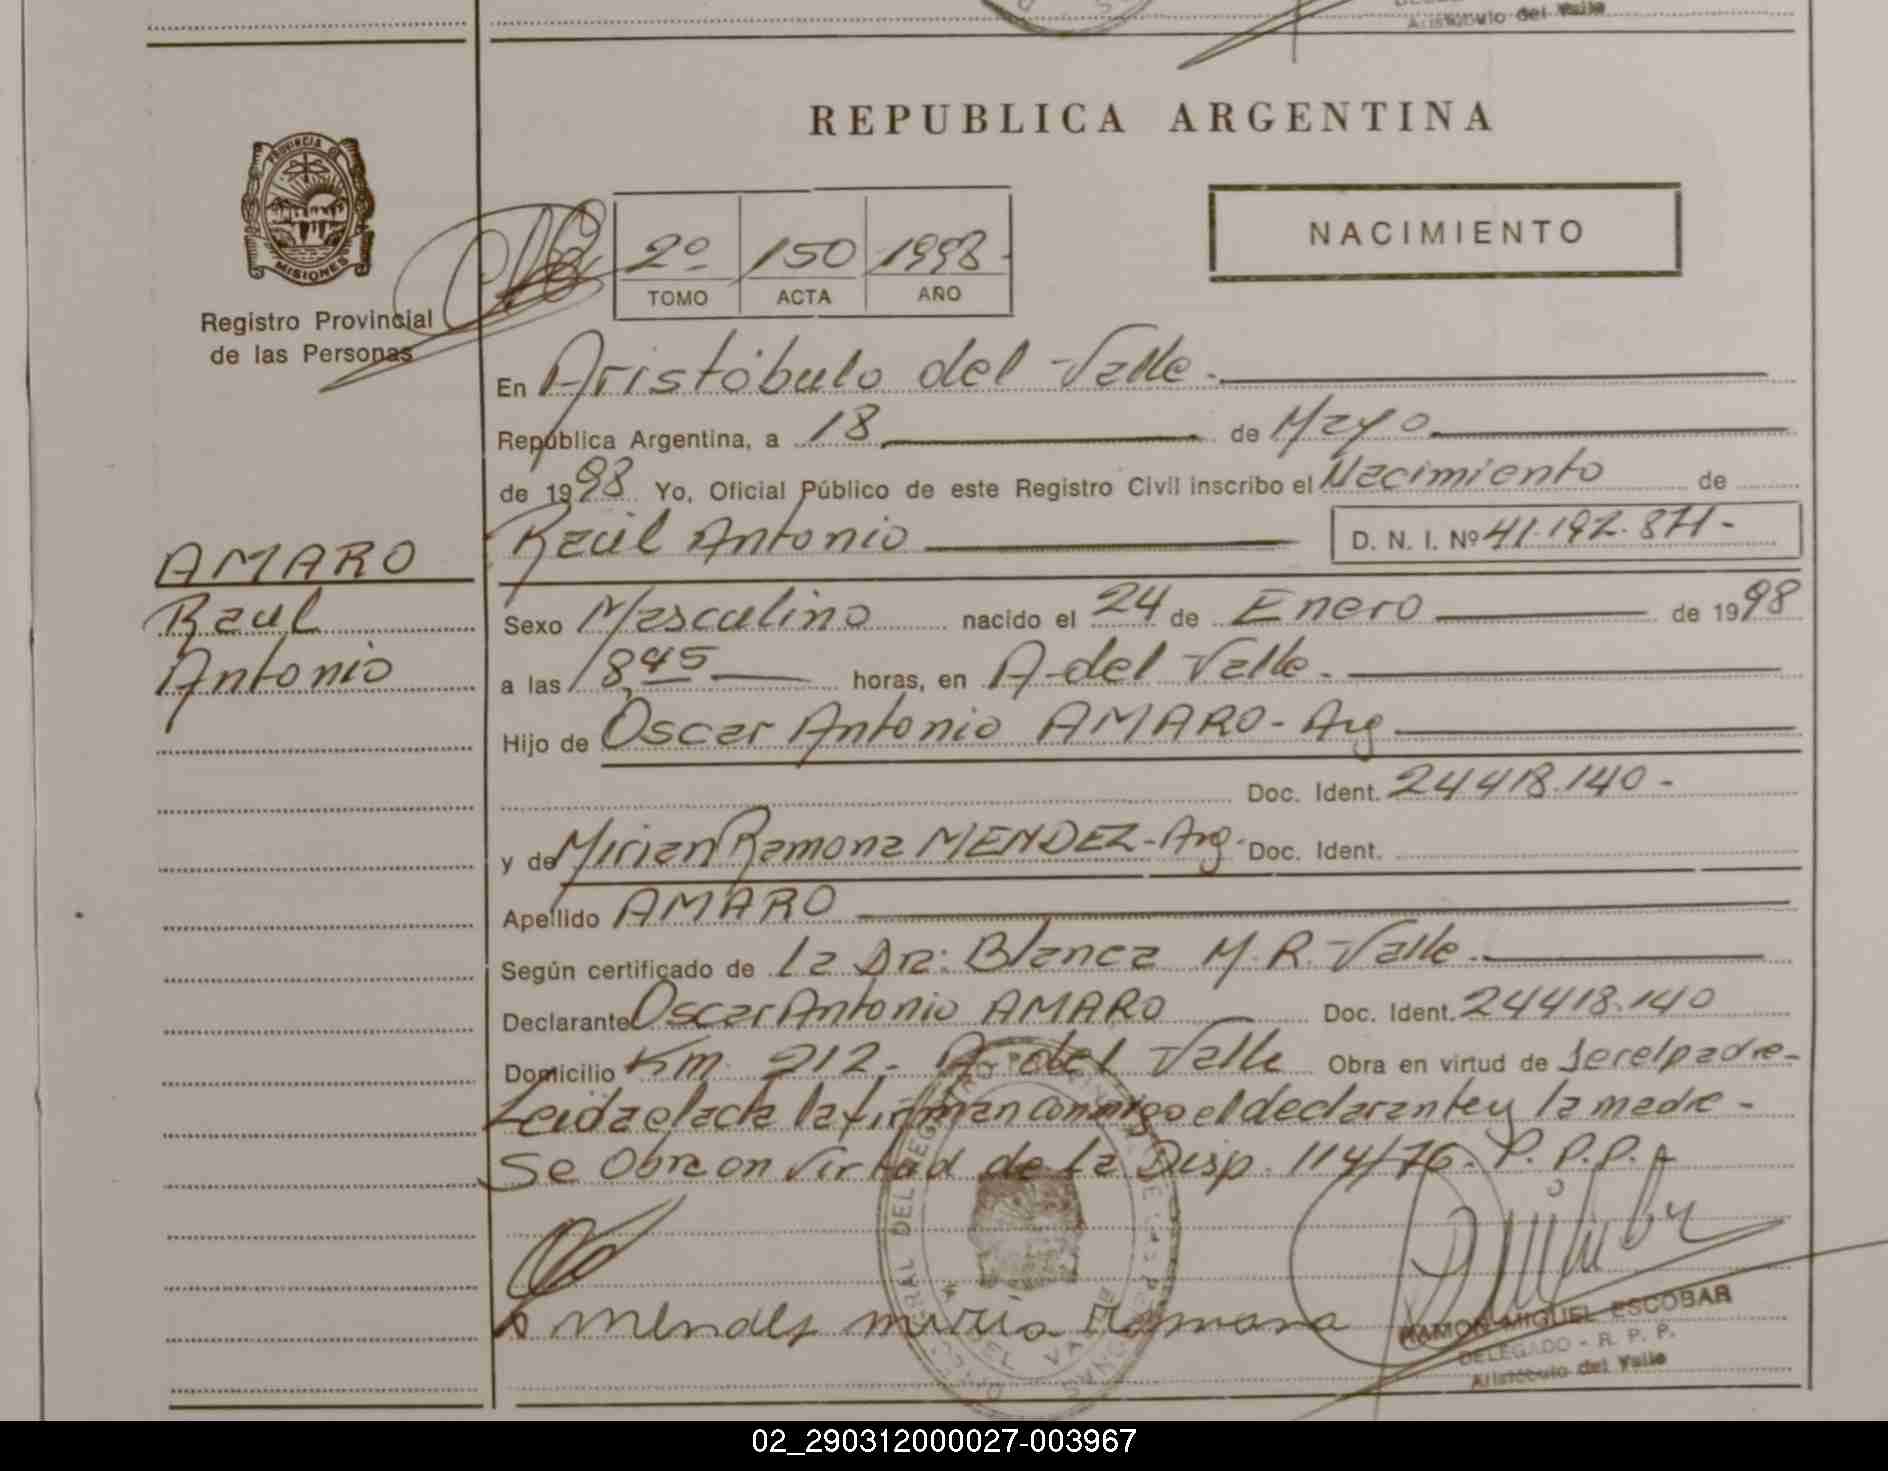 Aristóbulo del Valle
REPUBLICA ARGENTINA
PROVINCIA DE MISIONES
NACIMIENTO
2º 150 1998
TOMO ACTA AÑO
Registro Provincial
de las Personas
En Aristóbulo del Valle.
República Argentina, a 18 de Mayo
de 1998 Yo, Oficial Público de este Registro Civil inscribo el Nacimiento de
AMARO
Raúl Antonio D. N. I. Nº 41.192.871-
Raul
Sexo Masculino nacido el 24 de Enero de 1998
Antonio
a las 18,45 horas, en A. del Valle.
Hijo de Oscar Antonio AMARO- Arg
Doc. Ident. 24418.140-
y de Mirian Ramona MENDEZ- Arg- Doc. Ident.
Apellido AMARO
Según certificado de La Dra: Blanca M. R. Valle.
Declarante Oscar Antonio AMARO Doc. Ident. 24418.140
Domicilio Km. 212- A. del Valle Obra en virtud de Ser el padre-
Leida el acta la firman conmigo el declarante y la madre-
Se Obra en Virtud de la Disp. 114/76. P. P.P.
RAMON MIGUEL ESCOBAR
DELEGADO - R. P. P.
Aristóbulo del Valle
02_290312000027-003967